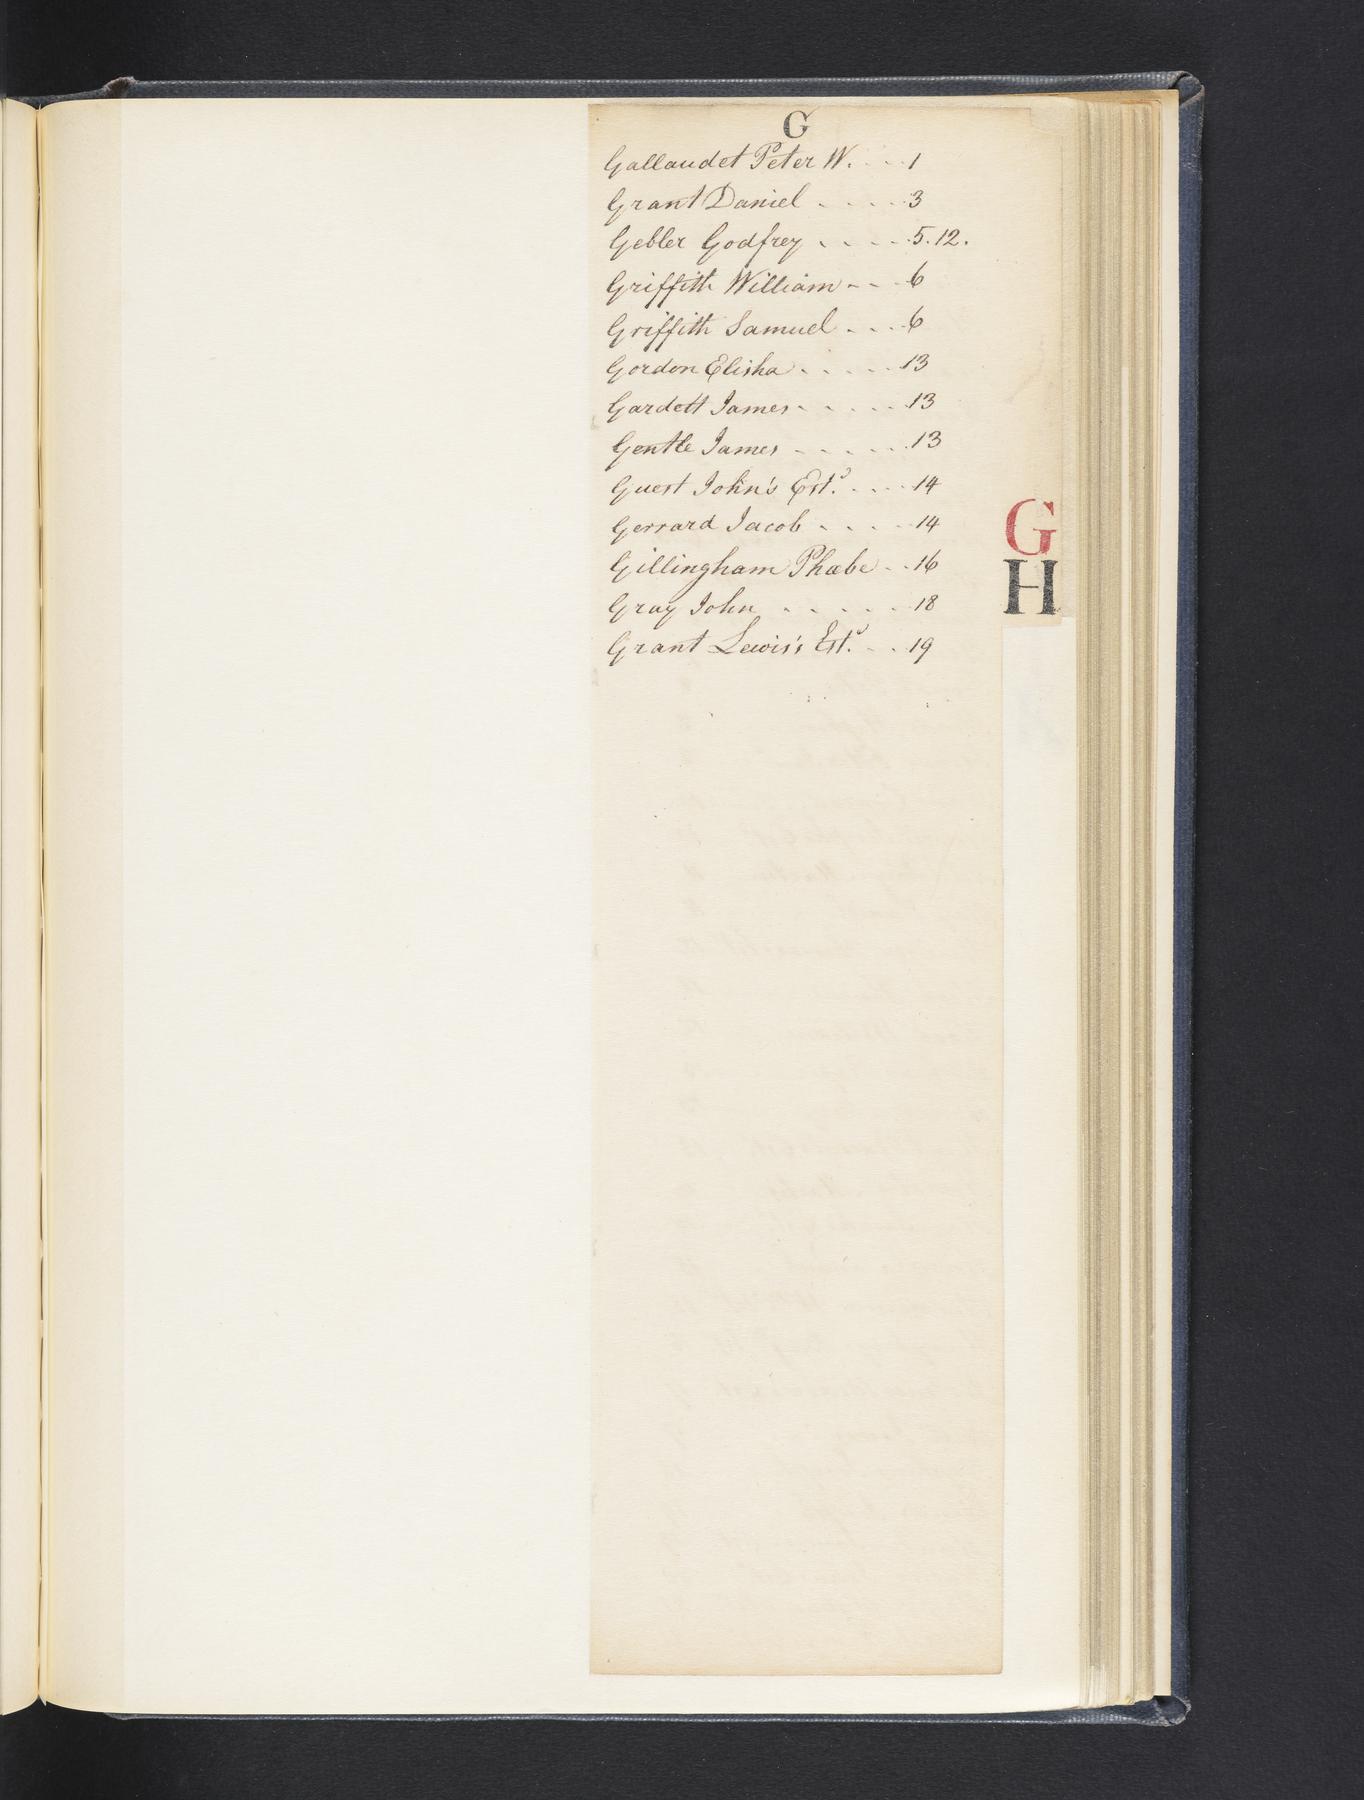 G
Gallaudet Peter W. . . . 1
Grant Daniel . . . . . 3
Gebler Godfrey . . . . . 5. 12.
Griffith William - - . 6
Griffith Samuel . . . . 6
Gordon Elisha . . . . . 13
Gardett James . . . . . 13
Gentle James . . . . . . 13
Guest John's Est.e . . . . 14
Gerrard Jacob . . . . 14
Gillingham Phœbe . . . 16
Gray John . . . . . . 18
Grant Lewis's Est.e . . . 19
G
H